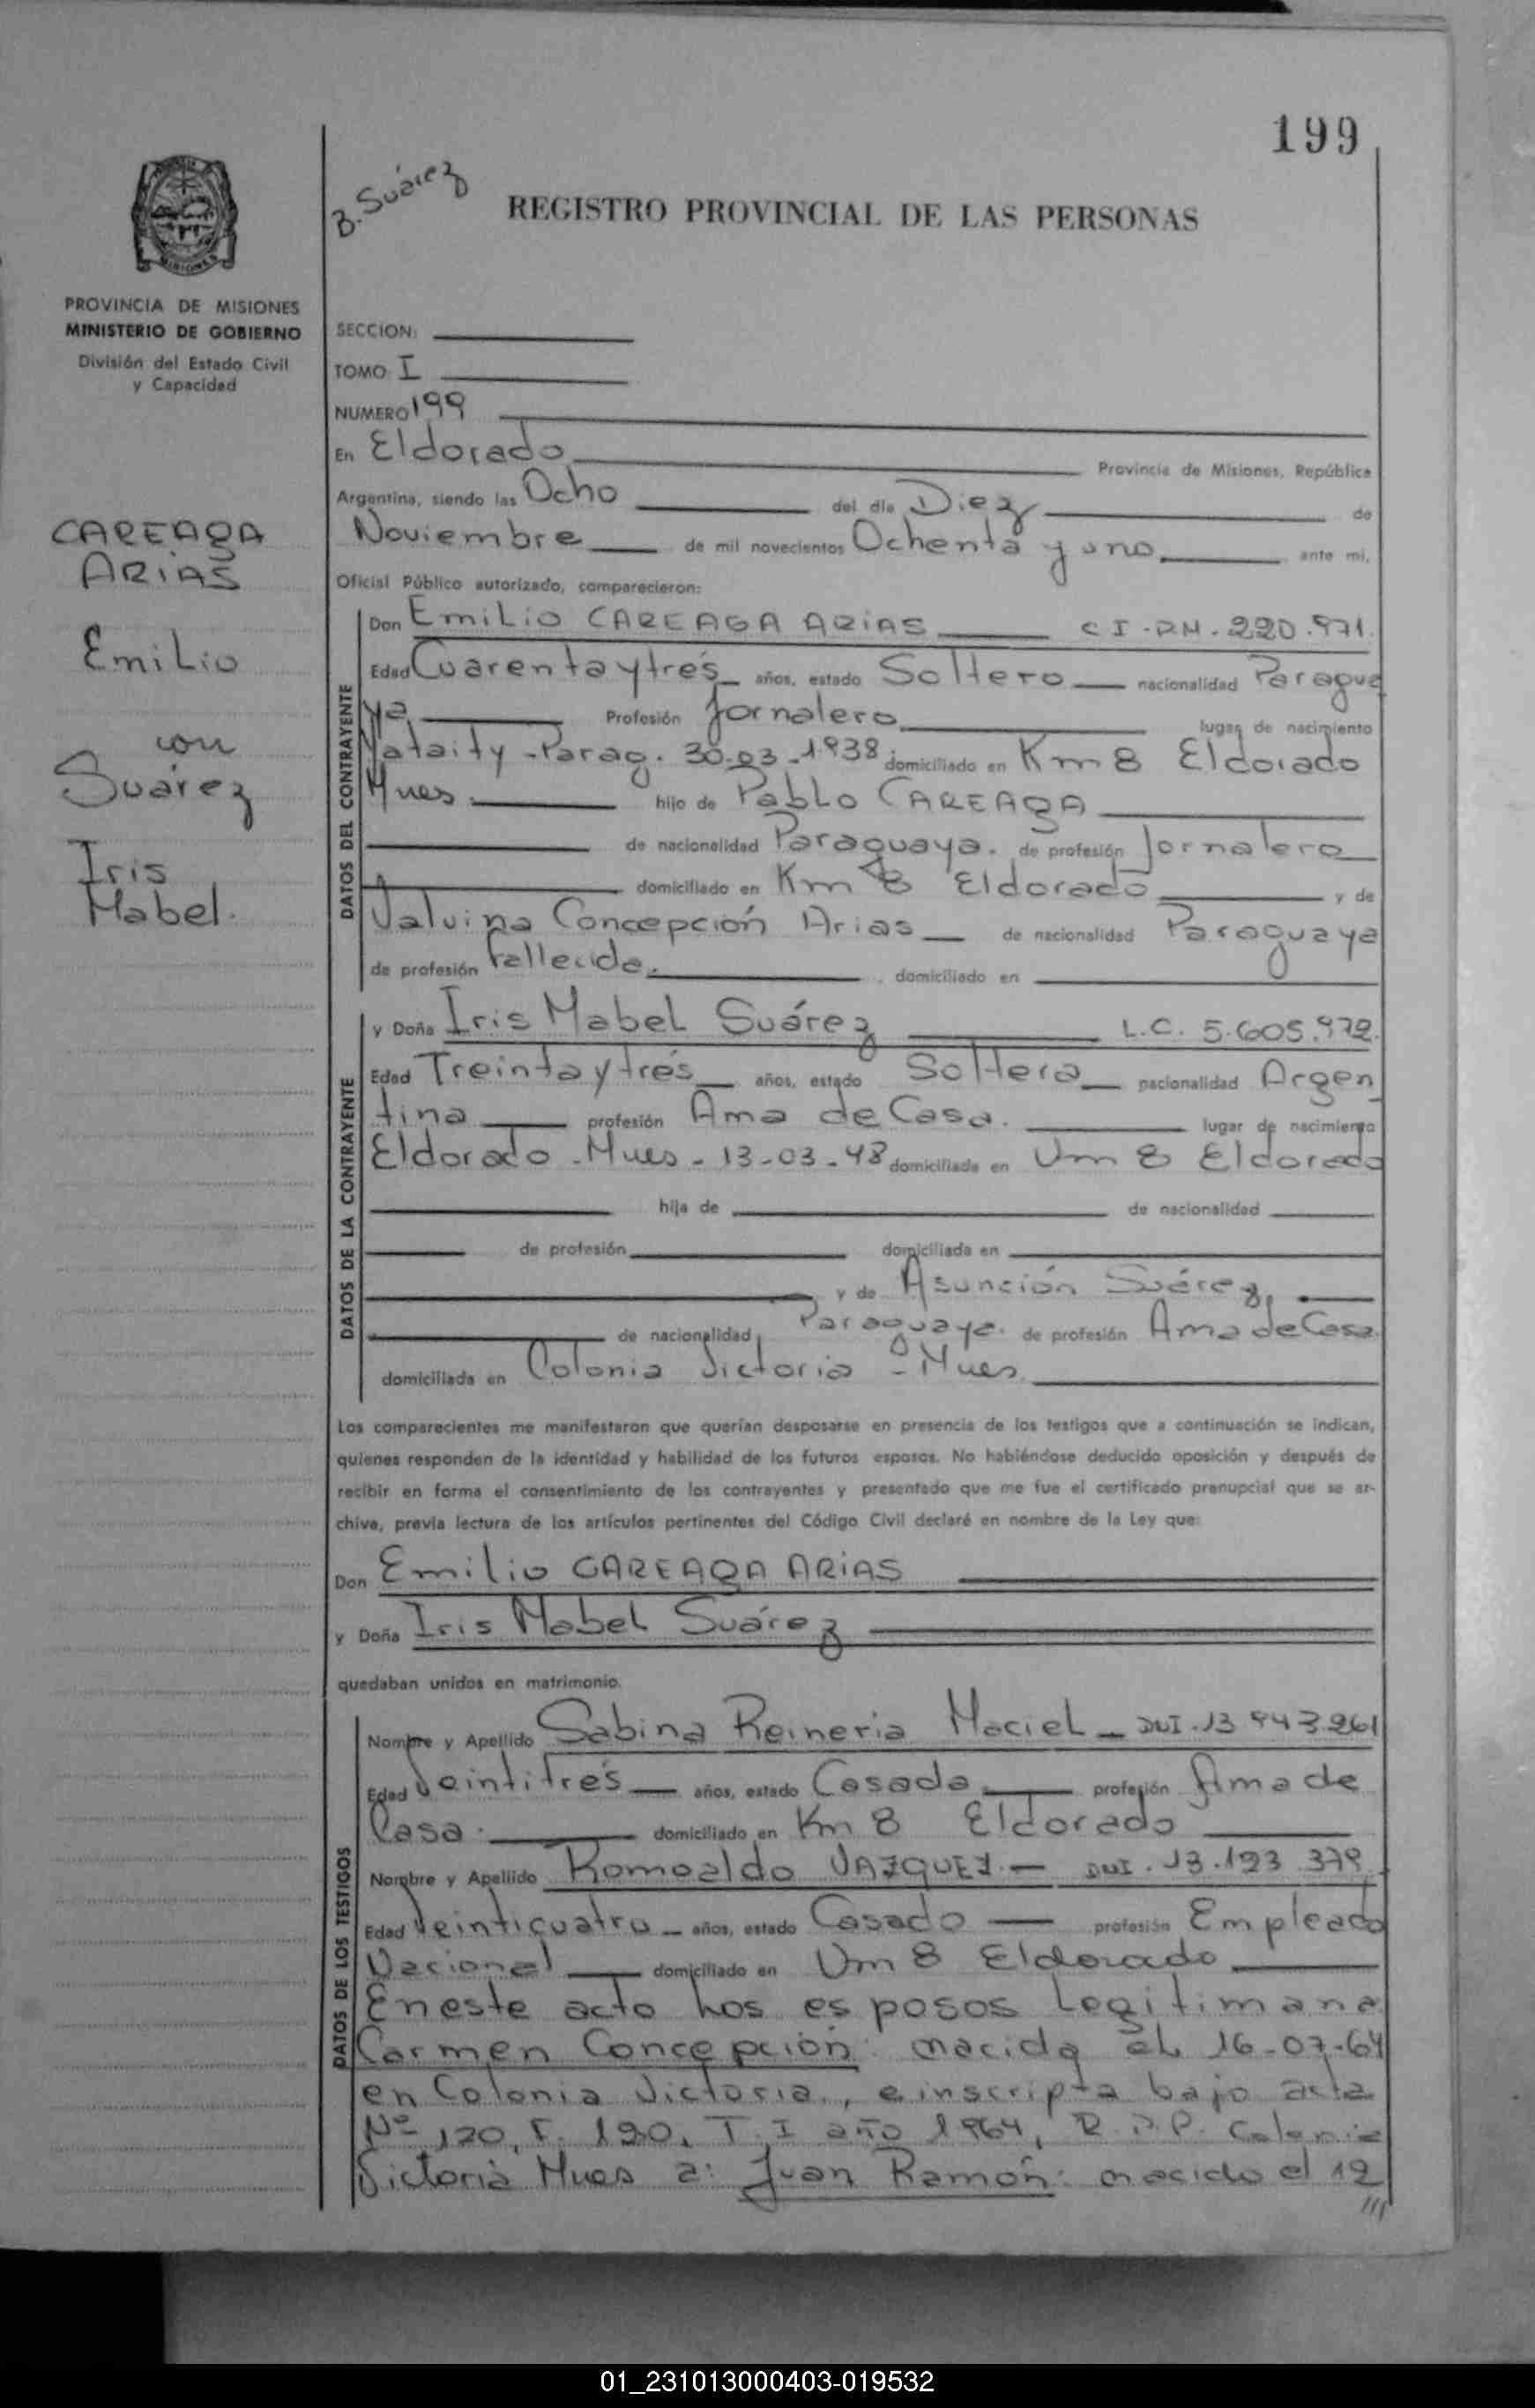 199
B. Suárez
REGISTRO PROVINCIAL DE LAS PERSONAS
PROVINCIA DE MISIONES
MINISTERIO DE GOBIERNO
División del Estado Civil
y Capacidad
SECCION:
TOMO I
NUMERO 199
En Eldorado Provincia de Misiones, República
Argentina, siendo las Ocho del día Diez de
Noviembre de mil novecientos Ochenta y uno ante mi,
Oficial Público autorizado, comparecieron:
CAREAGA
ARIAS
Emilio
con
Suárez
Iris
Mabel.
DATOS DEL CONTRAYENTE
Don Emilio CAREAGA ARIAS C I - PN - 220.971.
Edad Cuarenta y trés años, estado Soltero nacionalidad Paragua
ya Profesión Jornalero lugar de nacimiento
Yataity - Parag. 30-03-1938 domiciliado en Km 8 Eldorado
Mnes. hijo de Pablo CAREAGA
de nacionalidad Paraguaya. de profesión Jornalero
domiciliado en Km 8 Eldorado y de
Valvina Concepción Arias de nacionalidad Paraguaya
de profesión Fallecida. domiciliado en
DATOS DE LA CONTRAYENTE
y Doña Iris Mabel Suárez L.C. 5.605.972.
Edad Treinta y trés años, estado Soltera nacionalidad Argen
tina profesión Ama de Casa. lugar de nacimiento
Eldorado - Mnes - 13-03-48 domiciliada en Km 8 Eldorado
hija de de nacionalidad
de profesión domiciliada en
y de Asunción Suárez,
de nacionalidad Paraguaya. de profesión Ama de Casa.
domiciliada en Colonia Victoria - Mnes.
Los comparecientes me manifestaron que querían desposarse en presencia de los testigos que a continuación se indican,
quienes responden de la identidad y habilidad de los futuros esposos. No habiéndose deducido oposición y después de
recibir en forma el consentimiento de los contrayentes y presentado que me fue el certificado prenupcial que se ar-
chiva, previa lectura de los artículos pertinentes del Código Civil declaré en nombre de la Ley que:
Don Emilio CAREAGA ARIAS
y Doña Iris Mabel Suárez
quedaban unidos en matrimonio.
DATOS DE LOS TESTIGOS
Nombre y Apellido Sabina Reineria Maciel - DNI. 13 943.261
Edad Veintitrés años, estado Casada profesión Ama de
Casa. domiciliado en Km 8 Eldorado
Nombre y Apellido Romoaldo VAZQUEZ. - DNI. 13.193 379.
Edad Veinticuatro años, estado Casado profesión Empleado
Nacional domiciliado en Km 8 Eldorado
En este acto los esposos Legitiman a
Carmen Concepción: nacida el 16-07-64
en Colonia Victoria, e inscripta bajo acta
Nº 120, F. 120, T. I año 1964, R.P.P. Colonia
Victoria Mnes a: Juan Ramón: nacido el 12
///
01_231013000403-019532